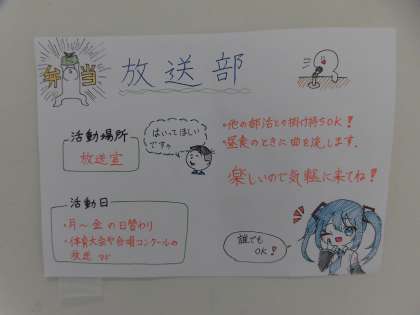 弁当
放送部
活動場所
放送室
はいってほしい
ですゥ
・他の部活との掛け持ちOK!
・昼食のときに曲を流します。
楽しいので気軽に来てね!
活動日
・月〜金の日替わり
・体育大会や合唱コンクールの
放送 など
誰でも
OK!